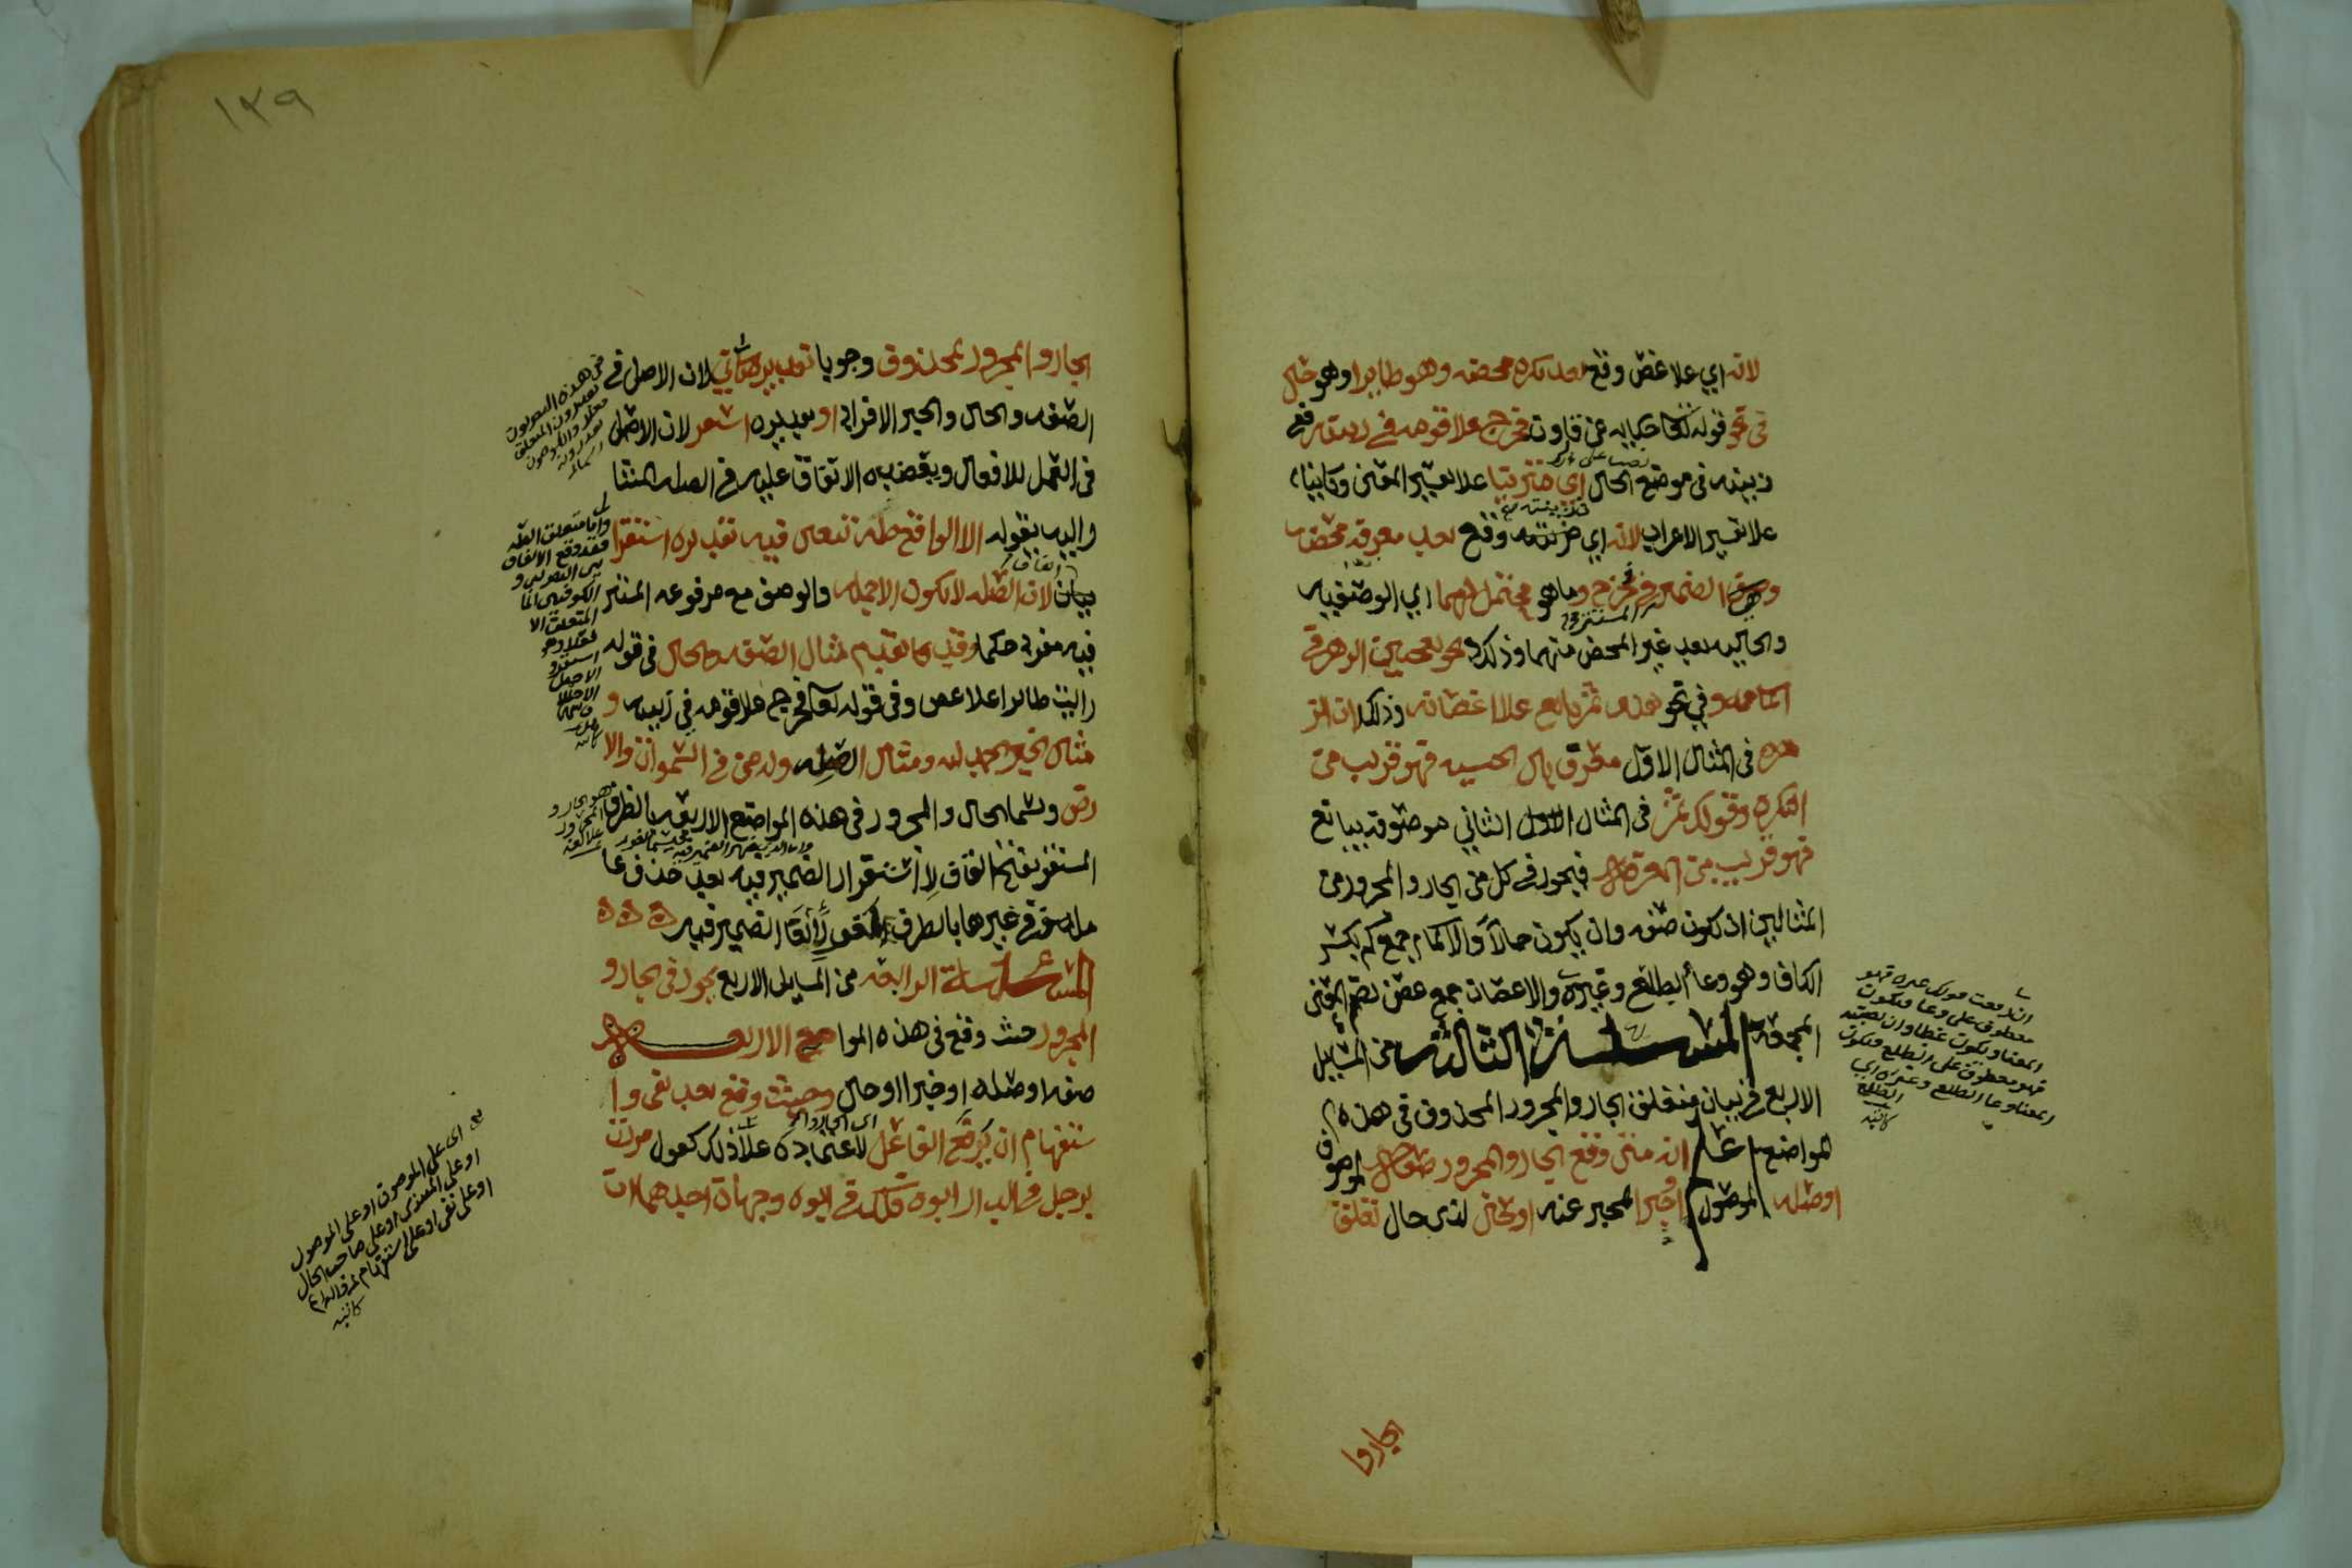 لانه اي علا غصن وقع بعد نكره محضه وهو طايرا وهو حال
في نحو قوله تعا حكايه عن قارون فخرج علا قومه في زينته في
زينته في موضع الحال اي متزينا علا تفسير المعنى وكاينا
علا تفسير الاعراب لانه اي في زينته وقع بعد معرفه محضه
وهي الضمير المستتر في خرج وما هو محتمل لهما اي الوصفيه
والحاليه بعد غير المحض منهما وذلك في نحو يعجبني الزهر في
اكمامه وفي نحو هذا ثمر يانع علا اغصانه وذلك لان الز
هر في المثال الاول معرف بال الجنسيه فهو قريب من
النكره وقولك ثمر في المثال الثاني موصوف بيانع
فهو قريب من المعرفه فيجوز في كل من الجار والمجرور من
المثالين ان تكون صفه وان يكون حالا والاكمام جمع كم بكسر
الكاف وهو وعاء الطلع وغيره والاغصان جمع غصن بضم الغين
المعجمه المسئلة الثالثه من المسايل
الاربع في بيان متعلق الجار والمجرور المحذوف في هذه
المواضع اعلم انه متى وقع الجار والمجرور صفه لموصوف
او صله لموصول او خبرا لمخبر عنه او حالا لذي حال تعلق
ان رفعت قولك غيره فهو
معطوف على وعا فيكون
المعنا ويكون غطا وان
فهو معطوف على الطلع فيكون
المعنا وعا الطلع وغيره اي
الطلع
كاتبه
الجاروا
١٣٩
الجار والمجرور بمحذوف وجوبا تقديره كاين لان الاصل في
الصفه والحال والخبر الافراد او تقديره استقر لان الاصل
في العمل للافعال ويعضده الاتفاق عليه في الصله المشا
واليه بقوله الا الواقع صله فيتعين فيه تقديره استقر
لان الصله لا تكون الا جمله والوصف مع مرفوعه المستتر
فيه مفرد حكما وقد تقدم مثال الصفه والحال في قوله
رايت طايرا علا غصن وفي قوله تعا فخرج علا قومه في زينته و
مثال الخبر الحمد لله ومثال الصله وله من في السموات والا
رض ويسما الجار والمجرور في هذه المواضع الاربعه بالظرف
المستقر بفتح القاف لاستقرار الضمير فيه بعد حذف عا
مله وفي غيرها بالظرف اللغو لالغا الضمير فيه
المسئلة الرابعه من المسايل الاربع يجوز في الجار و
المجرور حيث وقع في هذه المواضع الاربعه
صفه او صله او خبرا او حالا وحيث وقع بعد نفي وا
ستفهام ان يرفع الفاعل لاعتماده علا ذلك كقولك مررت
برجل في الدار ابوه فلك في ابوه وجهان احدهما ان
واما متعلق الصله
فقد وقع الاتفاق
بين البصريين و
الكوفيين
المتعلق الا
فعلا وهو
استقر و
الاصل
اي على الموصوف او على الموصول
او على المبتدى او على صاحب الحال
او على نفي او على استفهام
كاتبه